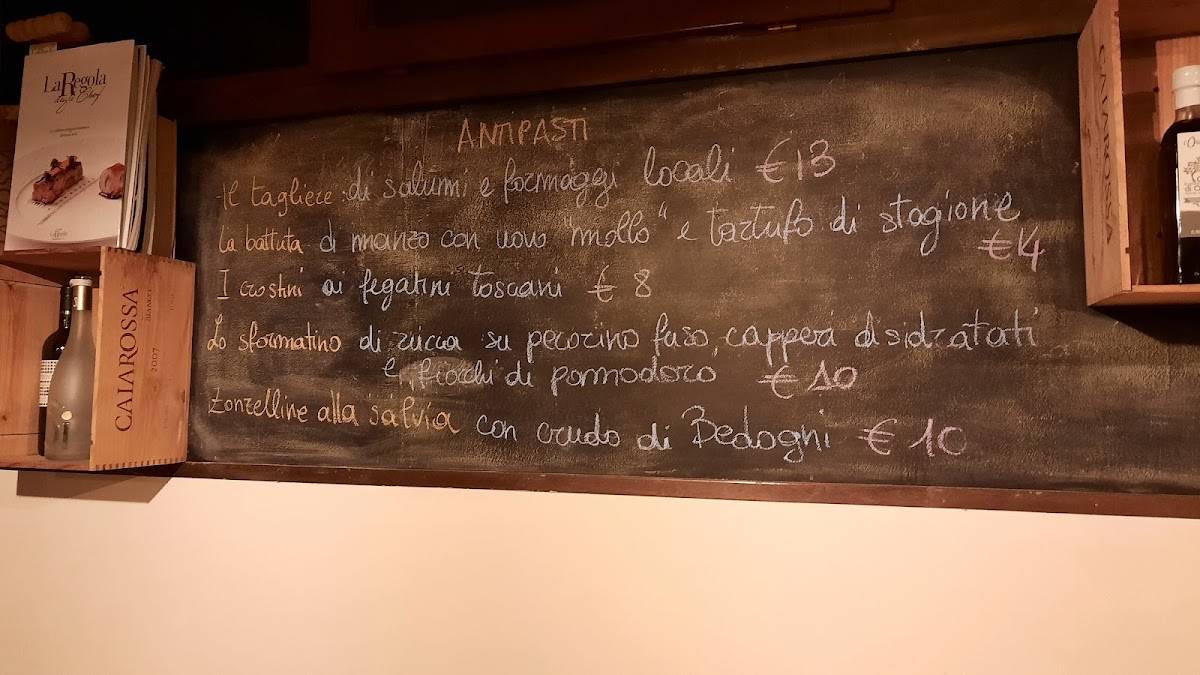 ANTIPASTI
Il tagliere: di salumi e formaggi locali €13
La battuta di manzo con uovo "mollo" e tartufo di stagione
€14
I crostini ai fegatini toscani € 8
Lo sformatino di zucca su pecorino fuso, capperi disidratati
e, fiocchi di pomodoro € 10
Zonzelline alla salvia con crudo di Bedogni € 10
La Regola
degli Chef
CAIAROSSA
BIANCO
2007
CAIAROSSA